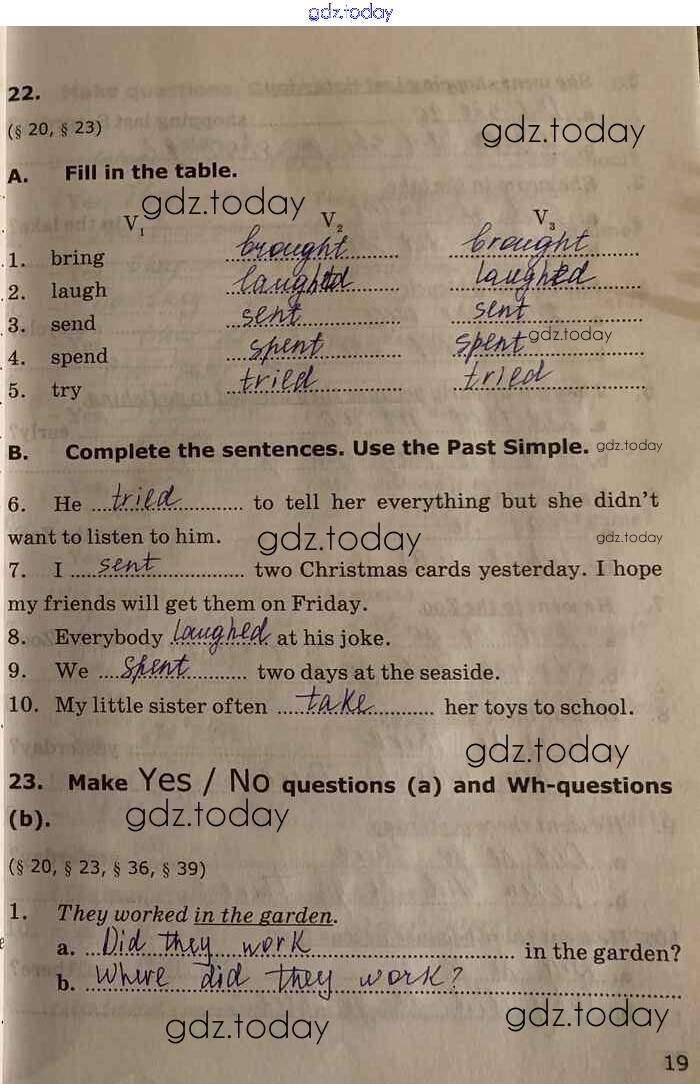 gdz.today
22.
(§ 20, § 23)
gdz.today
A. Fill in the table.
gdz.today
V1 V2 V3
1. bring brought brought
2. laugh laughed laughed
3. send sent sent
gdz.today
4. spend spent spent
5. try tried tried
B. Complete the sentences. Use the Past Simple. gdz.today
6. He tried to tell her everything but she didn't
want to listen to him. gdz.today gdz.today
7. I sent two Christmas cards yesterday. I hope
my friends will get them on Friday.
8. Everybody laughed at his joke.
9. We spent two days at the seaside.
10. My little sister often take her toys to school.
gdz.today
23. Make Yes / No questions (a) and Wh-questions
(b). gdz.today
(§ 20, § 23, § 36, § 39)
1. They worked in the garden.
a. Did they work in the garden?
b. Where did they work?
gdz.today gdz.today
19